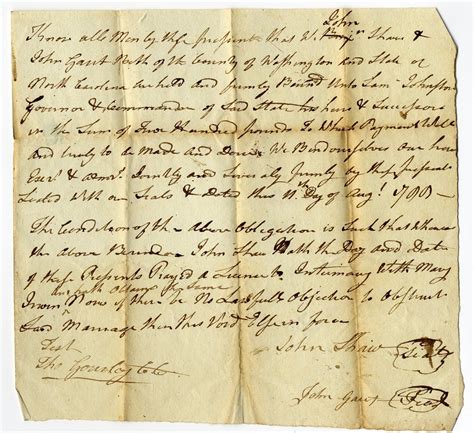 John
Know all Men by these presents that We Shaw &
John Gant Both of the County of Washington and State of
North Carolina are held and firmly Bound Unto Sam Johnston
Governor & Commander of Said State his heirs & Successors
in the Sum of Five Hundred pounds To Which Payment Well
and truly to be Made and Done We Bind ourselves our heirs
Exers & Admrs Jointly and Severaly firmly by these presents
Sealed with our Seals & Dated this 11th Day of Augt 1788
The Condition of the Above Obligation is Such that Whereas
the Above Bounden John Shaw Hath the Day and Date
of these Presents Prayed a Licence to Intermarry With Mary
and hath Obtaind the Same
Irwin Now if there be No Lawfull Objection to Obstruct
Said Marriage then this Void Else in force
Test John Shaw Seal
Tho Gourley
John Gant Seal